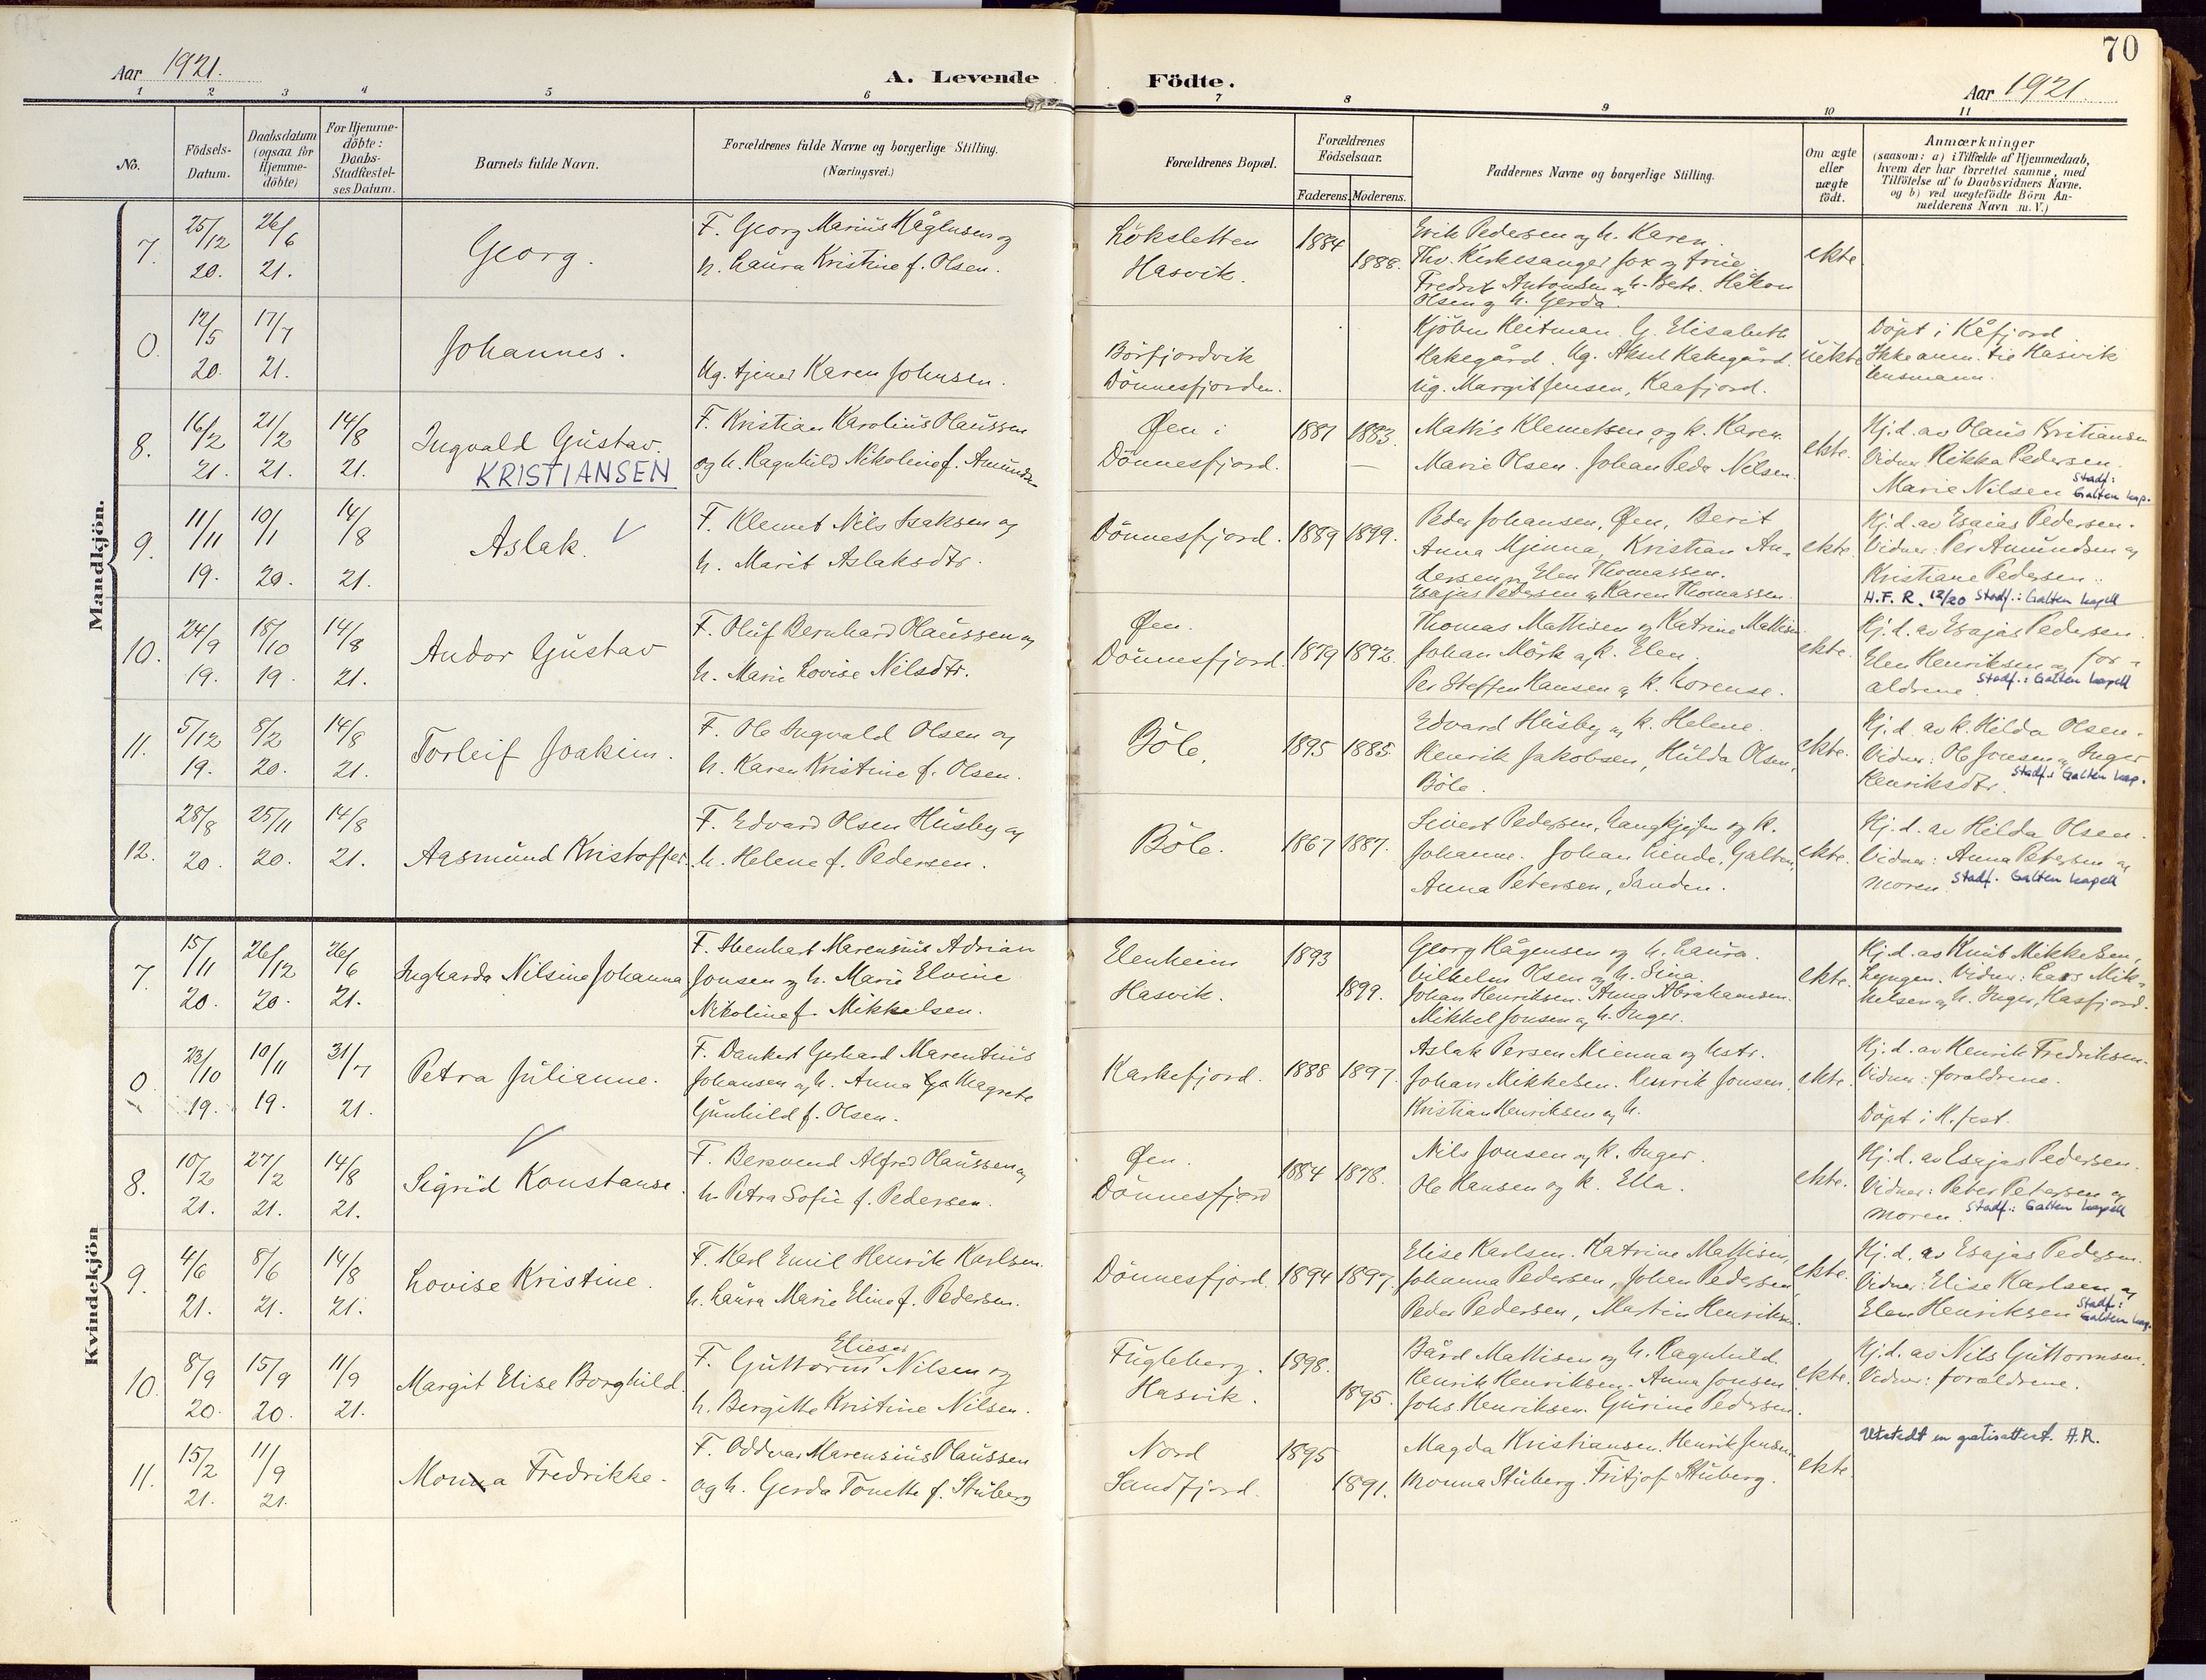 70
Aar 1921.
A. Levende Födte.
Aar 1921.
1 2 3 4 5 6 7 8 9 10 11
No.
Födsels-Datum.
Daabsdatum (ogsaa for Hjemme-döbte)
For Hjemme-döbte: Daabs-Stadfæstel-ses Datum.
Barnets fulde Navn.
Forældrenes fulde Navne og borgerlige Stilling. (Næringsvei.)
Forældrenes Bopæl.
Forældrenes Födselsaar.
Faderens. Moderens.
Faddernes Navne og borgerlige Stilling.
Om ægte eller uægte födt.
Anmærkninger
(saasom: a) i Tilfælde af Hjemmedaab,
hvem der har forrettet samme, med
Tilföielse af to Daabsvidners Navne.
og b) ved uægtefödte Börn An-
melderens Navn m. V.)
Mandkjön.
7. 25/12 20. 26/6 21.
Georg.
F. Georg Marius Hågensen og
h. Laura Kristine f. Olsen.
Löksletten
Hasvik.
1884 1888.
Erik Pedersen og h. Karen.
Thv. Kirkesanger Fox og frue
Fredrik Antonsen og h. Berte. Håkon
Olsen og h. Gerda.
ekte.
0. 12/5 20. 17/7 21.
Johannes.
Ug. tjener Karen Johnsen.
Börfjordvik
Dönnesfjorden.
Kjöbm Heitman. G. Elisabeth
Hakegård. Ug. Aksel Hakegård.
Ug. Margit Jensen, Kaafjord.
uekte
Döpt i Kåfjord
Ikke anm. til Hasvik
lensmann.
8. 16/2 21. 21/2 21. 14/8 21.
Ingvald Gustav.
KRISTIANSEN
F. Kristian Karolius Olaussen
og h. Ragnhild Nikoline f. Amundsen
Øen i
Dönnesfjord.
1881 1883.
Mattis Klemetsen og k. Karen.
Marie Olsen. Johan Peder Nilsen.
ekte.
Hj. d. av Olaus Kristiansen
Vidner Rikka Pedersen.
Marie Nilsen Stadf: Galten kap.
9. 11/11 19. 10/1 20. 14/8 21.
Aslak. V
F. Klemet Nils Isaksen og
h. Marit Aslaksdtr.
Dönnesfjord.
1889 1899.
Peder Johansen, Øen, Berit
Anna Mjenna, Kristian An-
dersen og Elen Thomassen.
Esajas Pedersen og Karen Thomassen.
ekte.
Hj. d. av Esaias Pedersen.
Vidner: Per Amundsen og
Kristiane Pedersen.
H.F.R. 12/20 Stadf.: Galten kapell
10. 24/9 19. 18/10 19. 14/8 21.
Andor Gustav
F. Oluf Bernhard Olaussen og
h. Marie Lovise Nilsdtr.
Øen.
Dönnesfjord.
1879 1892.
Thomas Mattisen og Katrine Mattisen.
Johan Mörk og k. Elen.
Per Steffen Hansen og k. Lorense.
ekte.
Hj. d. av Esajas Pedersen.
Elen Henriksen og for-
ældrene. Stadf.: Galten kapell
11. 5/12 19. 8/2 20. 14/8 21.
Torleif Joakim.
F. Ole Ingvald Olsen og
h. Karen Kristine f. Olsen.
Böle.
1895 1885.
Edvard Husby og k. Helene.
Henrik Jakobsen, Hulda Olsen,
Böle.
ekte.
Hj. d. av k. Hilda Olsen.
Vidner: Ole Jonsen og Inger
Henriksdtr. Stadf.: Galten kap.
12. 28/8 20. 25/11 20. 14/8 21.
Aasmund Kristoffer.
F. Edvard Olsen Husby og
h. Helene f. Pedersen.
Böle.
1867 1887.
Sivert Pedersen, Langkjosen og k.
Johanne. Johan Linde, Galten,
Anna Petersen, Sanden.
ekte.
Hj. d. av Hilda Olsen.
Vidner: Anna Petersen og
moren. Stadf. Galten kapell
Kvindekjön
7. 15/11 20. 26/12 20. 26/6 21.
Ingharda Nilsine Johanna
F. Ibenhart Marensius Adrian
Jonsen og h. Marie Elvine
Nikoline f. Mikkelsen.
Elenheim
Hasvik.
1893 1899.
Georg Hågensen og h. Laura.
Vilhelm Olsen og h. Sina.
Johan Henriksen. Anna Abrahamsen.
Mikkel Jonsen og h. Inger.
ekte.
Hj. d. av Knut Mikkelsen,
Lyngen. Vidner: Lars Mik-
kelsen og h. Inger, Hasfjord.
0. 23/10 19. 10/11 19. 31/7 21.
Petra Julianne.
F. Dankert Gerhard Marentius
Johansen og h. Anna Magrete
Gunhild f. Olsen.
Karkefjord.
1888 1897.
Aslak Persen Mienna og hstr.
Johan Mikkelsen. Henrik Jonsen.
Kristian Henriksen og h.
ekte.
Hj. d. av Henrik Fredriksen.
Vidner: foreldrene.
Döpt i H.fest.
8. 10/2 21. 27/2 21. 14/8 21.
V
Sigrid Konstanse.
F. Bersvend Alfred Olaussen og
h. Petra Sofie f. Pedersen.
Øen.
Dönnesfjord
1884 1878.
Nils Jonsen og k. Inger.
Ole Hansen og k. Ella.
ekte.
Hj. d. av Esajas Pedersen.
Vidner: Peter Petersen og
moren. Stadf.: Galten kapell
9. 4/6 21. 8/6 21. 14/8 21.
Lovise Kristine.
F. Karl Emil Henrik Karlsen.
h. Laura Marie Eline f. Pedersen.
Dönnesfjord.
1894 1897.
Elise Karlsen. Katrine Mattisen,
Johanna Pedersen, Johan Pedersen
Peder Pedersen, Martin Henriksen.
ekte.
Hj. d. av Esajas Pedersen.
Vidner: Elise Karlsen og
Elen Henriksen Stadf.: Galten kap.
10. 8/9 20. 15/9 20. 11/9 21.
Margit Elise Borghild.
Elieser
F. Guttorm Nilsen og
h. Bergitte Kristine Nilsen.
Fugleberg.
Hasvik.
1898. 1895.
Bård Mattisen og h. Ragnhild.
Henrik Henriksen. Anna Jonsen
Johs. Henriksen. Gurine Pedersen.
ekte.
Hj. d. av Nils Guttormsen.
Vidner: foreldrene.
11. 15/2 21. 11/9 21.
Monna Fredrikke.
F. Oddvar Marensius Olaussen
og h. Gerda Tonette f. Stuberg
Nord
Sandfjord.
1895 1891.
Magda Kristiansen. Henrik Jensen.
Monna Stuberg. Fritjof Stuberg.
ekte.
Utstedt en gratisattest. H.R.